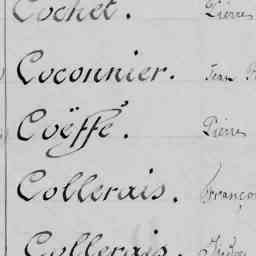 Cochet. Pierre
Coconnier. Jean
Coëffé. Pierre
Collerais. Françoi
Collerais. Isidore